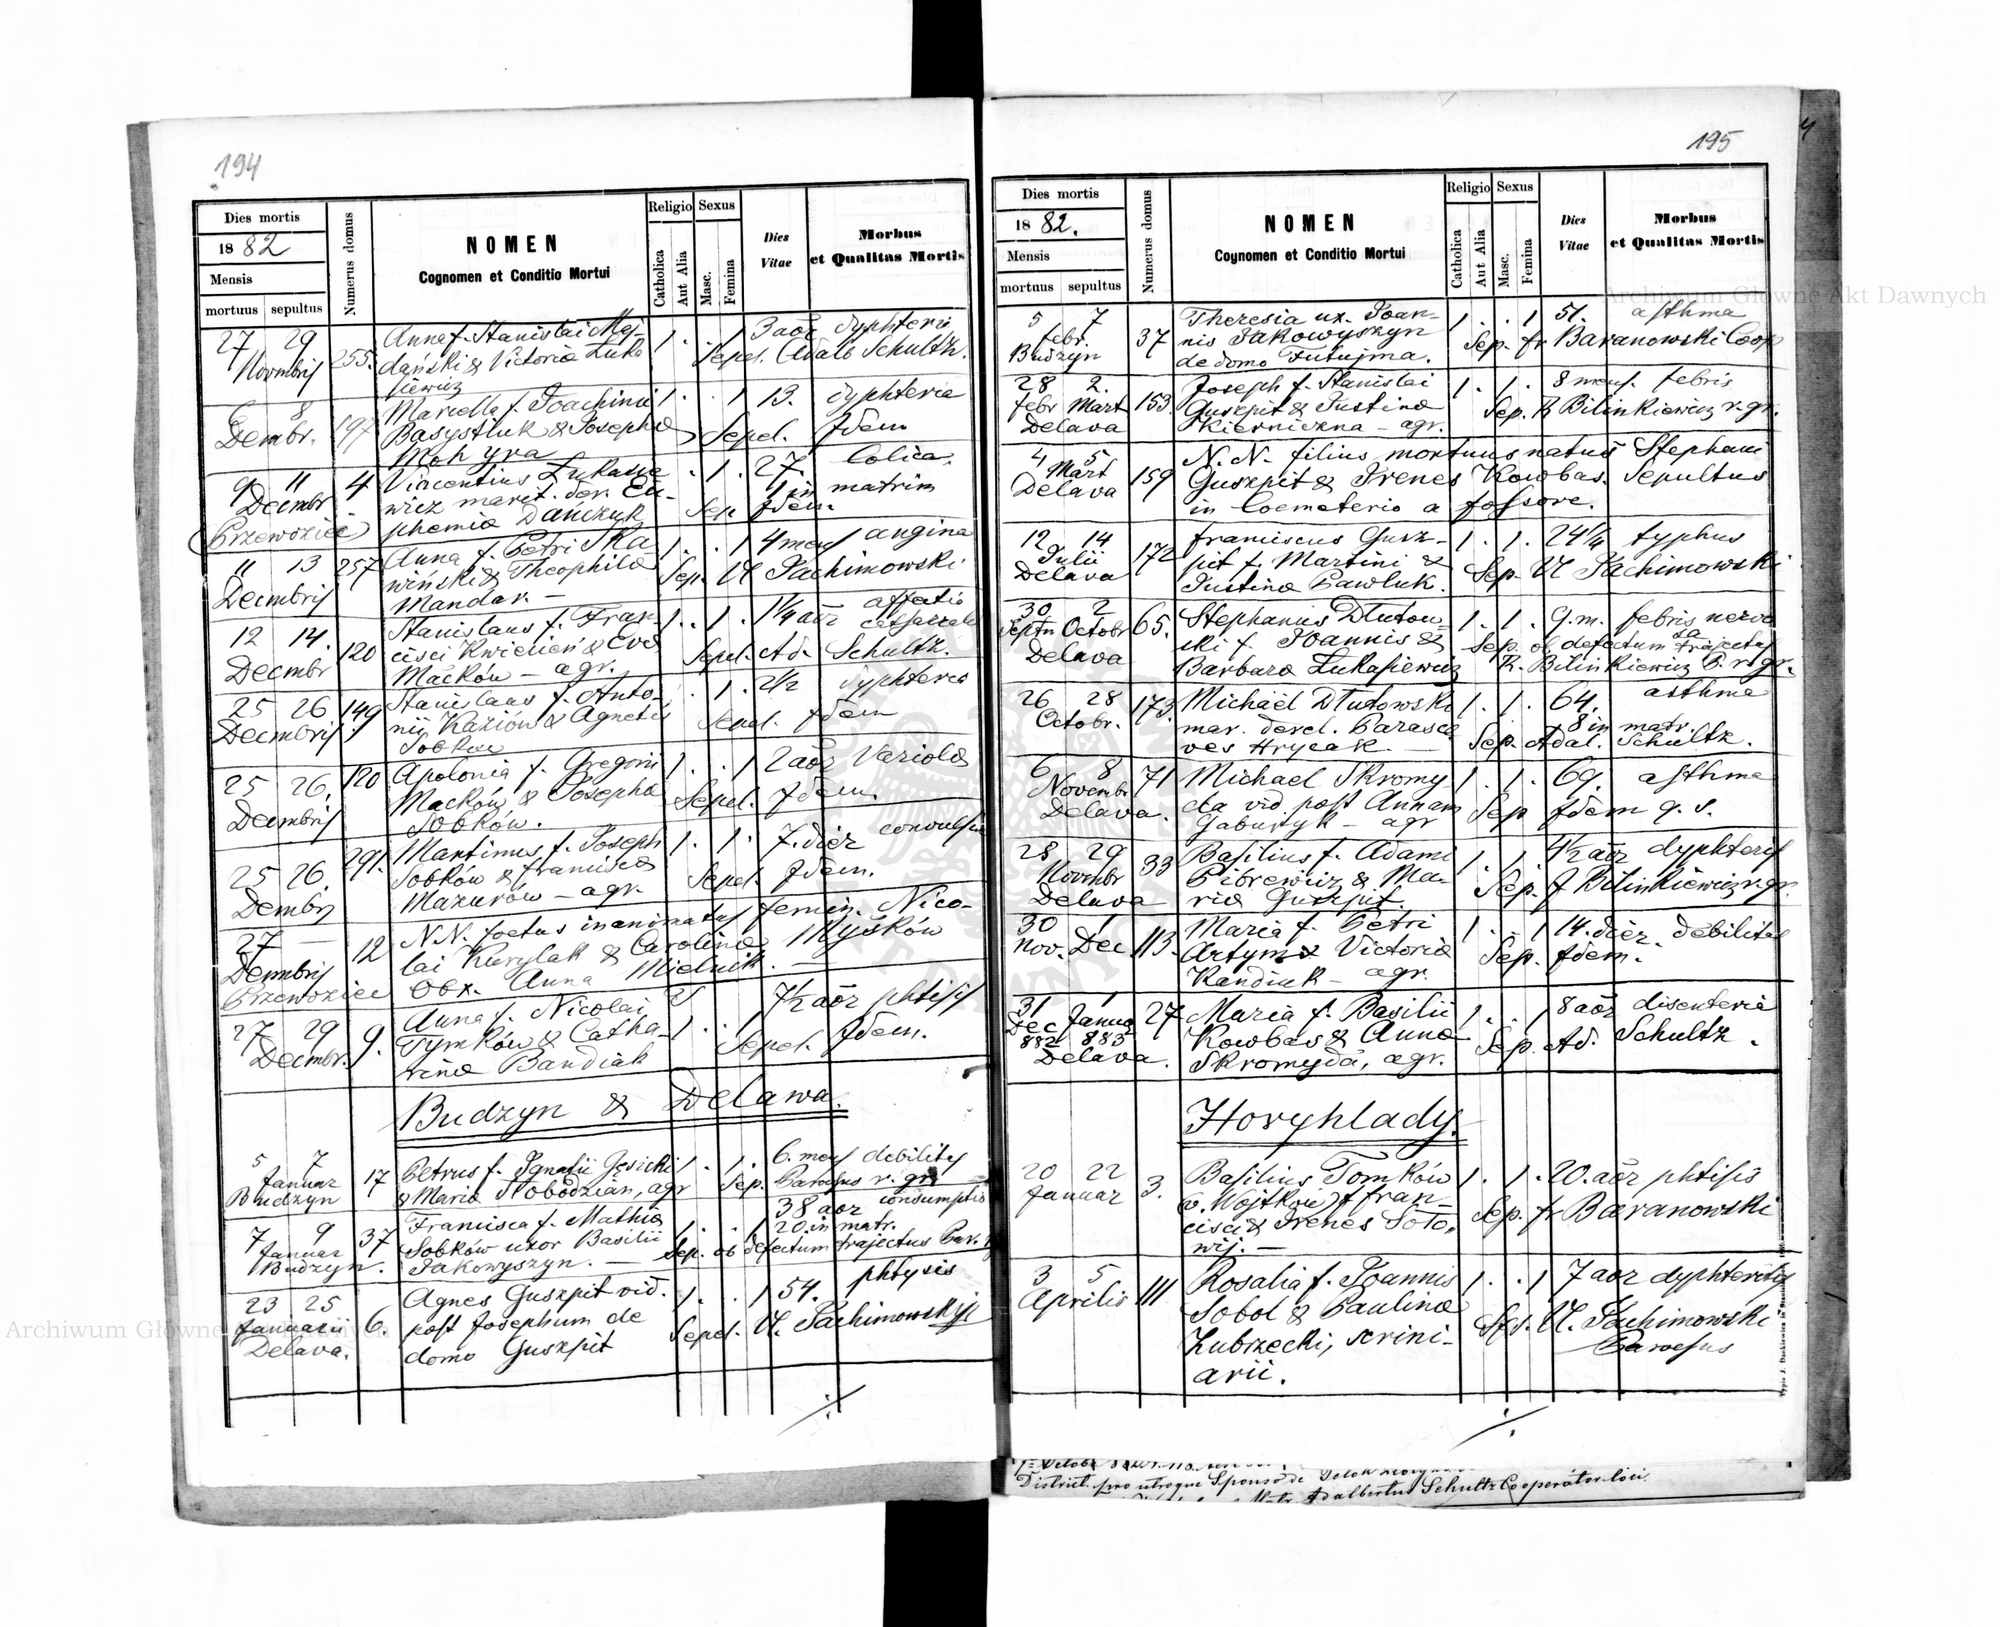 194
Dies mortis
1882
Mensis
mortuus sepultus
Numerus domus
NOMEN
Cognomen et Conditio Mortui
Religio
Catholica
Aut Alia
Sexus
Masc.
Femina
Dies
Vitae
Morbus
et Qualitas Mortis
27 29 Anna f. Stanislai Maj- 1 . . 1 3 aor dyphteris
Novmbris 255. dański & Victoria Łuka Sepel. Adalb Schultz.
siewicz
6 8 Marcella f. Joachimi 1 . . 1 13. dyphteria
Dembr. 197 Basystiuk & Josepha Sepel. Idem
Mohyra
9 11 4 Vincentius Łukasie 1 . 1 . 27. Colica.
Decmbr wicz marit. der. Eu- 1 in matrim
Przewoziec phemia Dańczuk Sep Idem.
11 13 257 Anna f. Petri Ska 1 . . 1 4 mens angina
Decmbris wiński & Theophila Sep. Vl Jachimowski
Mandar. —
12 14. Stanislaus f. Fran 1 . 1 . 1¼ aor affectio
Decmbr 120 cisci Kwicień & Eva Sepel. Ad. Schultz.
Maćków — agr.
25 26 149 Stanislaus f. Anto- . 1 . 2½ dyphteres
Decmbris nii Kaziów & Agnetis Sepel. Idem
Sobków
25 26. 120 Apolonia f. Gregorii 1 . . 1 2 aor Variola
Decmbris Maćków & Josepha Sepel. Idem.
Sobków.
25 26. 291. Martinus f. Joseph 1 . 1 . 7. dier convulsio
Dembris Sobków & francisca Sepel. Idem.
Mazurów — agr.
27 — 12 N.N. foetus inanimatus femin. Nico-
Demmbris lai Kurylak & Carolina Myśków
Przewoziec Obx. Anna Mielnik. —
27 29 Anna f. Nicolai 1 . . 1 7½ aor phtisis
Decmbr. 9. Tymków & Catha- Sepel. Idem.
rina Bandiak
Budzyn & Delawa.
5 7 Petrus f. Ignatii Gęsicki 1 . 1 . 6. mens debilitas
Januar 17 & Maria Słobodzian, agr Sep. Parochus r. gr.
Budzyn
7 9 37 Francisca f. Mathia 1 . . 1 38 aor consumptio
Januar Sobków uxor Basilii 20 in matr.
Budzyn. Jakowyszyn. — Sep. ob defectum trajectus Par.
23 25 Agnes Guszpit vid. 1 . . 1 54. phtysis
Januarii 6. post Josephum de Sepel. Vl. Jachimowski
Delava. domo Guszpit
195
Dies mortis
1882.
Mensis
mortuus sepultus
Numerus domus
NOMEN
Coynomen et Conditio Mortui
Religio
Catholica
Aut Alia
Sexus
Masc.
Femina
Dies
Vitae
Morbus
et Qualitas Mortis
5 7 Theresia ux. Joan- 1 . . 1 51. asthma
febr. 37 nis Jakowyszyn Sep. fr Baranowski Coop
Budzyn de domo Tutujma.
28 2. Joseph f. Stanislai 1 . 1 . 8 mens. febris
febr Mart 153. Guszpit & Justina Sep. Bilinkiewicz r. gr.
Delava Kierniczna — agr.
4 5 N. N. filius mortuus natus Stephani
Mart 159 Guszpit & Irenes Kowbas. Sepultus
Delava in Coemeterio a fossore.
12 14 franciscus Gusz- 1 . 1 . 24¼ typhus
Julii 172 pit f. Martini & Sep. Vl Jachimowski
Delava Justina Pawluk.
30 2 Stephanus Dłutow- 1 . 1 . 9. m. febris nervo
Septm Octobr 65. ski f. Joannis & Sep. ob defectum trajectus sa
Delava Barbara Łukasiewicz Bilinkiewicz P. r. gr.
26 28 Michaël Dłutowski 1 . 1 . 64. asthma
Octobr. 173. mar. derel. Parasce 8 in matr.
ves Hrycak. — Sep. Adal. Schultz.
6 8 71 Michael Skromy 1 . 1 . 69. asthma
Novembr da vid post Annam Sep Idem q. s.
Delava. Gaburyk — agr
28 29 Basilius f. Adami 1 . 1 . 4½ aor dyphteris
Novmbr 33 Pibrewicz & Ma- Sep. J Bilinkiewicz r. gr.
Delava ria Guszpit.
30 1 Maria f. Petri 1 . . 1 14. dier. debilitas
Nov. Dec. 113. Artym & Victoria Sep. Idem.
Kandiuk — agr.
31 1 Maria f. Basilii 1 . . 1 8 aor disenteria
Dec Janua 27 Kowbas & Anna Sep. Ad. Schultz.
882 883 Skromyda, agr.
Delava.
Horyhlady.
20 22 Basilius Tomków 1 . 1 . 20. aor phtisis
Januar 3. (v. Wojtków) f fran- Sep. fr Baranowski
cisci & Irenes Soło-
wij. —
3 5 Rosalia f. Joannis 1 . . 1 7 aor dyphteritis
Aprilis 111 Sobol & Paulina Sep. Vl. Jachimowski
Zubrzecki, scrini- Parochus
arii.
District. pro utroque Sponso de
Adalbertus Schultz Cooperator loci.
Archiwum Główne Akt Dawnych
Archiwum Główne Akt Dawnych